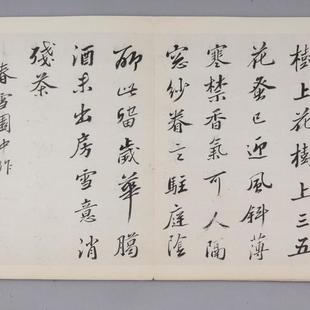 樹上花樹上三五
花蚤已迎風斜薄
寒禁香氣可人隔
窓紗眷言駐庭陰
聊此留歲華臈
酒未出房雪意消
殘茶
春雪園中作